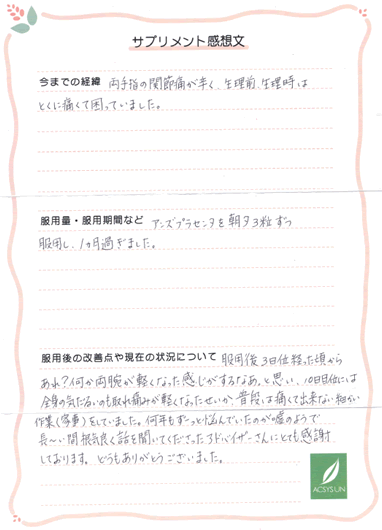 サプリメント感想文
今までの経緯 両手指の関節痛が辛く、生理前、生理時は
とくに痛くて困っていました。
服用量・服用期間など アンズプラセンタを朝夕3粒ずつ
服用し、1ヵ月過ぎました。
服用後の改善点や現在の状況について 服用後3日位経った頃から
あれ?何か両腕が軽くなった感じがするなあ。と思い、10日目位には
全身の気だるいのも取れ痛みが軽くなったせいか、普段は痛くて出来ない細かい
作業(家事)をしていました。何年もずーっと悩んでいたのが嘘のようで
長〜い間根気良く話を聞いてくださったアドバイザーさんにとても感謝
しております。どうもありがとうございました。
ACSYSUN